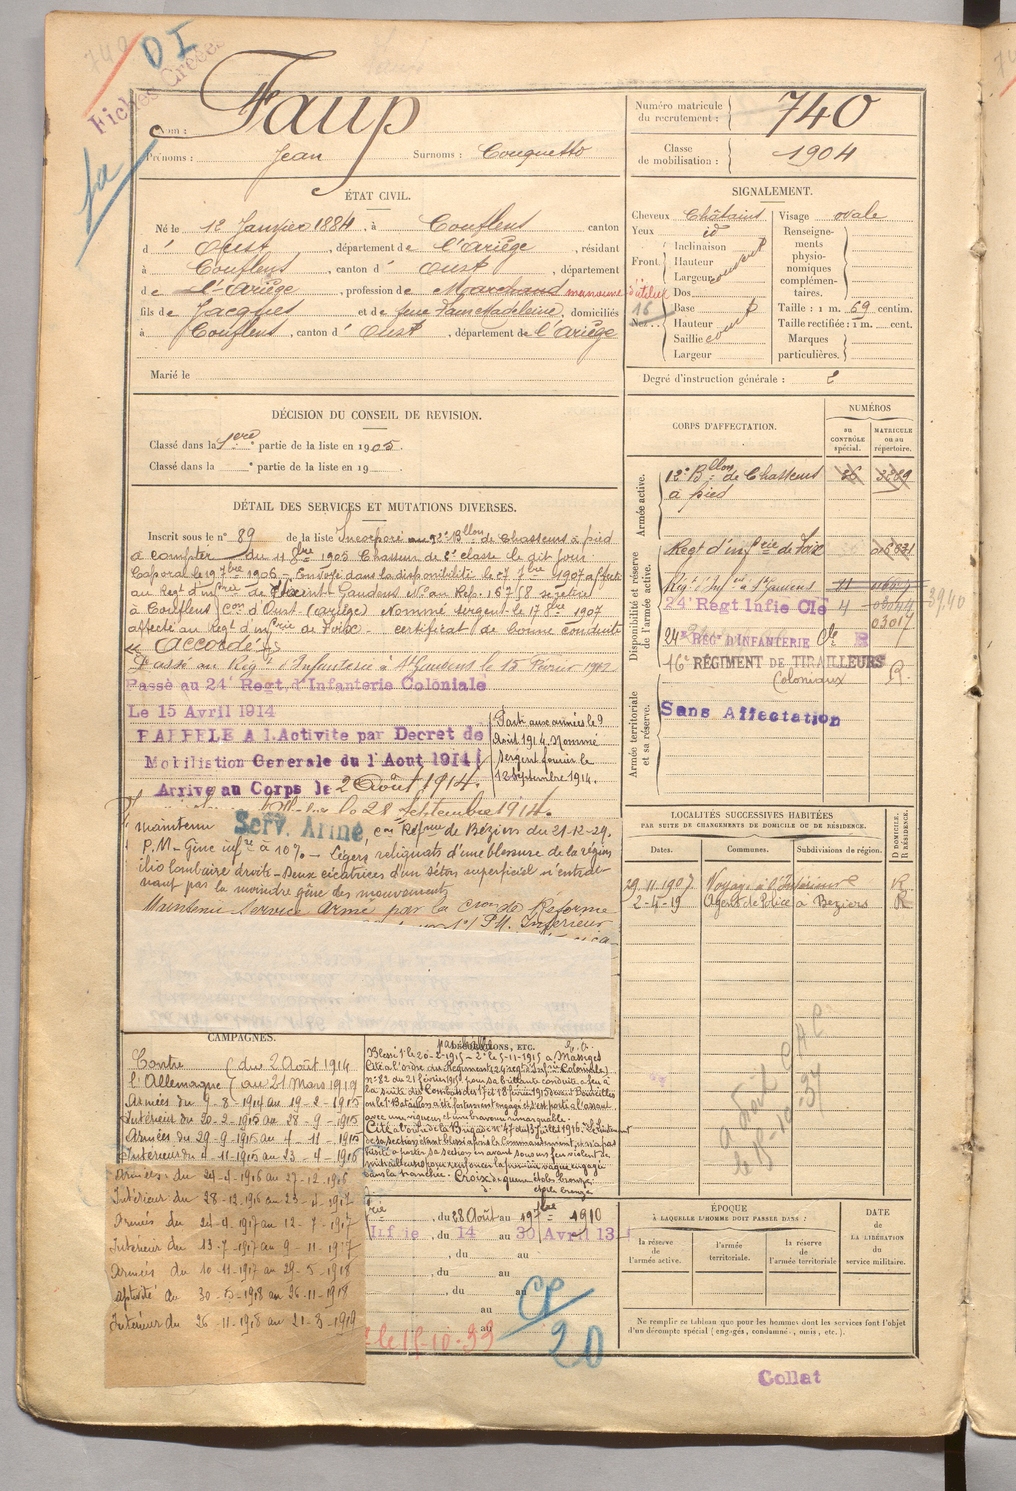 740
DI
Fiches Créées
Nom : Faup
Prénoms : Jean Surnoms : Couquetto
Numéro matricule du recrutement : 740
Classe de mobilisation : 1904
ÉTAT CIVIL.
Né le 12 Janvier 1884, à Couflens canton
d' Oust, département de l'Ariège, résidant
à Couflens, canton d' Oust, département
de l'Ariège, profession de Marchand
fils de Jacques et de feue Faup Madeleine, domiciliés
à Couflens, canton d' Oust, département de l'Ariège
Marié le
SIGNALEMENT.
Cheveux Châtains
Yeux id
Front Inclinaison Hauteur Largeur couvert
Nez Dos Base Hauteur Saillie Largeur court
Visage ovale
Renseignements physionomiques complémentaires.
Taille : 1 m. 69 centim.
Taille rectifiée : 1 m. cent.
Marques particulières.
Degré d'instruction générale : 2
DÉCISION DU CONSEIL DE REVISION.
Classé dans la 1ere partie de la liste en 1905.
Classé dans la partie de la liste en 19
DÉTAIL DES SERVICES ET MUTATIONS DIVERSES.
Inscrit sous le n° 89 de la liste Incorporé au 12e Bllon de Chasseurs à pied
à compter du 11 8bre 1905 Chasseur de 2e classe le dit jour.
Caporal le 19 7bre 1906 - Envoyé dans la disponibilité le 27 7bre 1907 affecté
au Régt d'infrie de Saint Gaudens
à Couflens con d'Oust (ariège) Nommé sergent le 17 8bre 1907
affecté au Régt d'infrie de Foix - certificat de bonne conduite
"Accordé"
Passé au Régt d'Infanterie à St Gaudens le 15 Février 1912
Passè au 24e Regt. d'Infanterie Colôniale
Le 15 Avril 1914
RAPPELE A l.Activite par Decret de
Mobilistion Generale du 1 Aout 1914
Arrive au Corps le 2 Août 1914.
Parti aux armées le 9
Août 1914. Nommé
Sergent fourrier le
12 Septembre 1914.
le 28 Septembre 1914.
Maintenu Serv. Armé con Réfme de Béziers du 21-12-29.
P.M - Gêne infre à 10% - Légers reliquats d'une blessure de la région
ilio lombaire droite - Deux cicatrices d'un séton superficiel n'entraî-
nant pas la moindre gêne des mouvements
Maintenu Service Armé par la Cion de Réforme
CORPS D'AFFECTATION.
NUMÉROS
au CONTRÔLE spécial.
MATRICULE ou au répertoire.
Armée active.
12e Bllon de Chasseurs à pied 36 3289
Disponibilité et réserve de l'armée active.
Régt d'infrie de Foix
Régt d'Infrie à St Gaudens 11
24e Régt Infie Cle 4
03017
24e REGt D'INFANTERIE Cle R
16e RÉGIMENT DE TIRAILLEURS
Coloniaux R.
Armée territoriale et sa réserve.
Sans Affectation
LOCALITÉS SUCCESSIVES HABITÉES
PAR SUITE DE CHANGEMENTS DE DOMICILE OU DE RÉSIDENCE.
Dates. Communes. Subdivisions de région. D DOMICILE. R RÉSIDENCE.
29.11.1907 Voyage à l'Intérieur R
2-4-19 Agent de Police à Béziers R
CAMPAGNES.
Contre l'Allemagne (du 2 Août 1914
(au 21 Mars 1919
Armées du 9-8-1914 au 19-2-1915
Intérieur du 20-2-1915 au 28-9-1915
Armées du 29-9-1915 au 4-11-1915
Intérieur du 4-11-1915 au 23-4-1916
Armées du 24-4-1916 au 27-12-1916
Intérieur du 28-12-1916 au 23-4-1917
Armées du 24-4-1917 au 12-7-1917
Intérieur du 13-7-1917 au 9-11-1917
Armées du 10-11-1917 au 29-5-1918
Captivité du 30-5-1918 au 26-11-1918
Intérieur du 26-11-1918 au 21-3-1919
DÉCORATIONS, ETC.
Blessé 1° le 20-2-1915 - 2° le 5-11-1915 à Massiges
Cité à l'ordre du Régiment (24e régt d'Infrie Coloniale)
n° 82 du 21 février 1915 pour sa brillante conduite au feu à
la suite des Combats des 17 et 18 février 1915
où le 1er Bataillon a été fortement engagé et s'est porté à l'assaut
avec une vigueur et une bravoure remarquable.
Cité à l'ordre de la Brigade n° 47 du 13 juillet 1916.
Croix de guerre étoile bronze.
étoile bronze
du 28 Août au 19 7bre 1910
Infie du 14 au 30 Avril 13
, du au
, du au
, du au
au
au
le 15-10-33
CP
20
a droit C A C
le 15-10-37
ÉPOQUE
À LAQUELLE L'HOMME DOIT PASSER DANS :
la réserve de l'armée active.
l'armée territoriale.
la réserve de l'armée territoriale
DATE de LA LIBÉRATION du service militaire.
Ne remplir ce tableau que pour les hommes dont les services font l'objet
d'un décompte spécial (engagés, condamnés, omis, etc.).
Collat